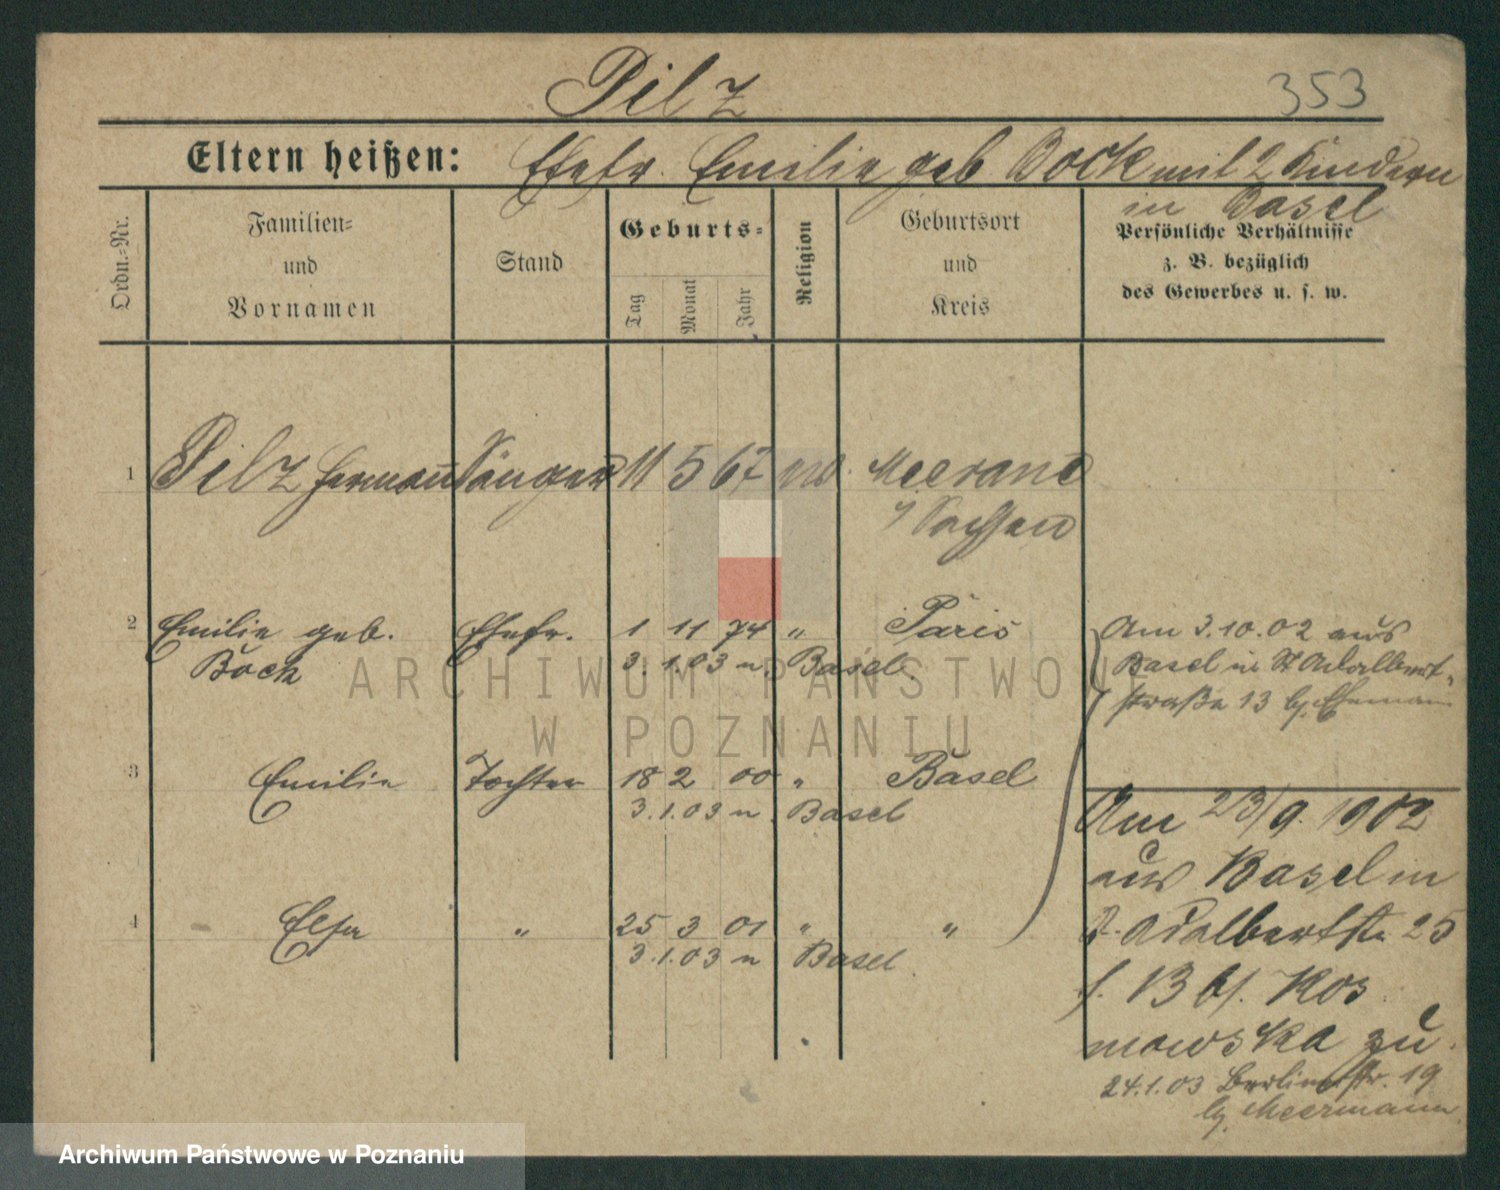 Pilz
353
Eltern heißen: Ehefr. Emilie geb Bock mit 2 Kindern
in Basel
Ordn.-Nr.
Familien- und Vornamen
Stand
Geburts-
Tag
Monat
Jahr
Religion
Geburtsort und Kreis
Persönliche Verhältnisse
z. B. bezüglich
des Gewerbes u. s. w.
1 Pilz Hermann Sänger 11 5 67 Meerane
i/ Sachsen
2 Emilie geb. Ehefr. 1 11 74 " Paris
Bock 3.1.03 n. Basel.
Am 3.10.02 aus
Basel in St Adalbert-
straße 13 bj. Ehemann
3 Emilie Tochter 18 2 00 " Basel
3.1.03 n. Basel
4 Elsa " 25 3 01 " "
3.1.03 n Basel
Am 23/9. 1902
aus Basel in
St. Adalbertstr 25
13 bj. Kos
mowska zu.
24.1.03 Berlinerstr. 19
bj. Meermann
ARCHIWUM PAŃSTWOWE
W POZNANIU
Archiwum Państwowe w Poznaniu